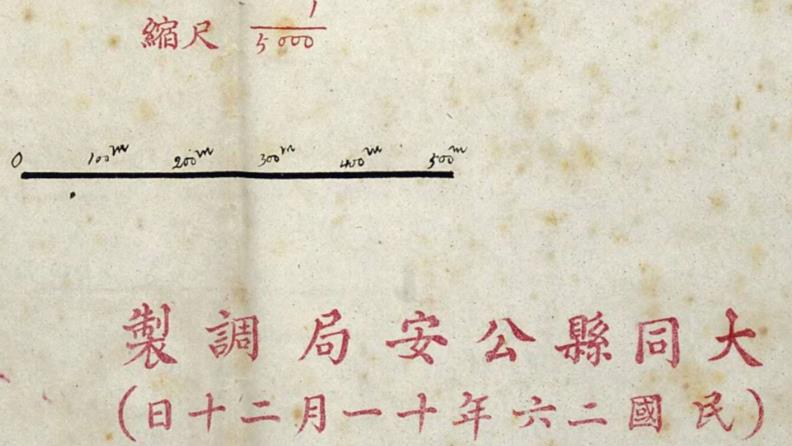 縮尺 1/5000
0 100m 200m 300m 400m 500m
大同縣公安局調製
(民國二六年十一月二十日)